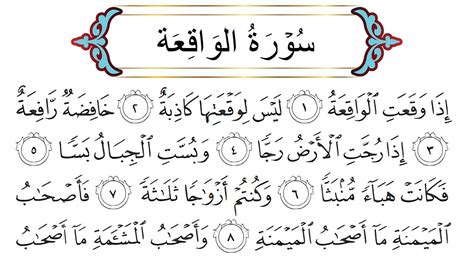 سُوۡرَةُ الوَاقِعَة
إِذَا وَقَعَتِ ٱلۡوَاقِعَةُ ١ لَيۡسَ لِوَقۡعَتِهَا كَاذِبَةٌ ٢ خَافِضَةٞ رَّافِعَةٌ
٣ إِذَا رُجَّتِ ٱلۡأَرۡضُ رَجّٗا ٤ وَبُسَّتِ ٱلۡجِبَالُ بَسّٗا ٥
فَكَانَتۡ هَبَآءٗ مُّنۢبَثّٗا ٦ وَكُنتُمۡ أَزۡوَٰجٗا ثَلَٰثَةٗ ٧ فَأَصۡحَٰبُ
ٱلۡمَيۡمَنَةِ مَآ أَصۡحَٰبُ ٱلۡمَيۡمَنَةِ ٨ وَأَصۡحَٰبُ ٱلۡمَشۡـَٔمَةِ مَآ أَصۡحَٰبُ